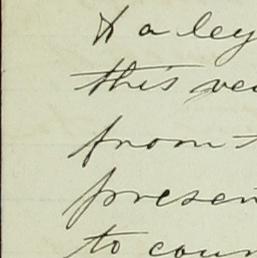 & a ley
this ve
from
presen
to cour